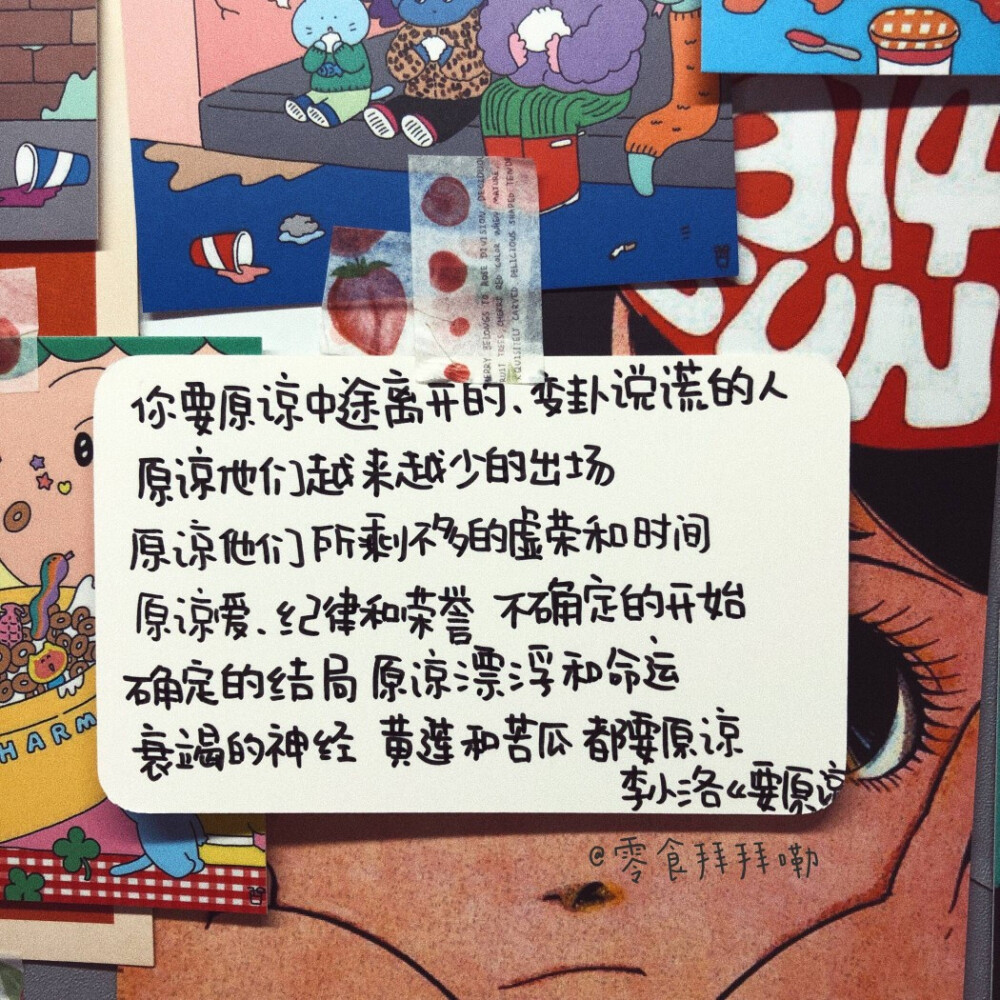 你要原谅中途离开的、变卦说谎的人
原谅他们越来越少的出场
原谅他们所剩不多的虚荣和时间
原谅爱、纪律和荣誉 不确定的开始
确定的结局 原谅漂浮和命运
衰竭的神经 黄莲和苦瓜 都要原谅
李小洛《要原谅
@零食拜拜嘞
HARM